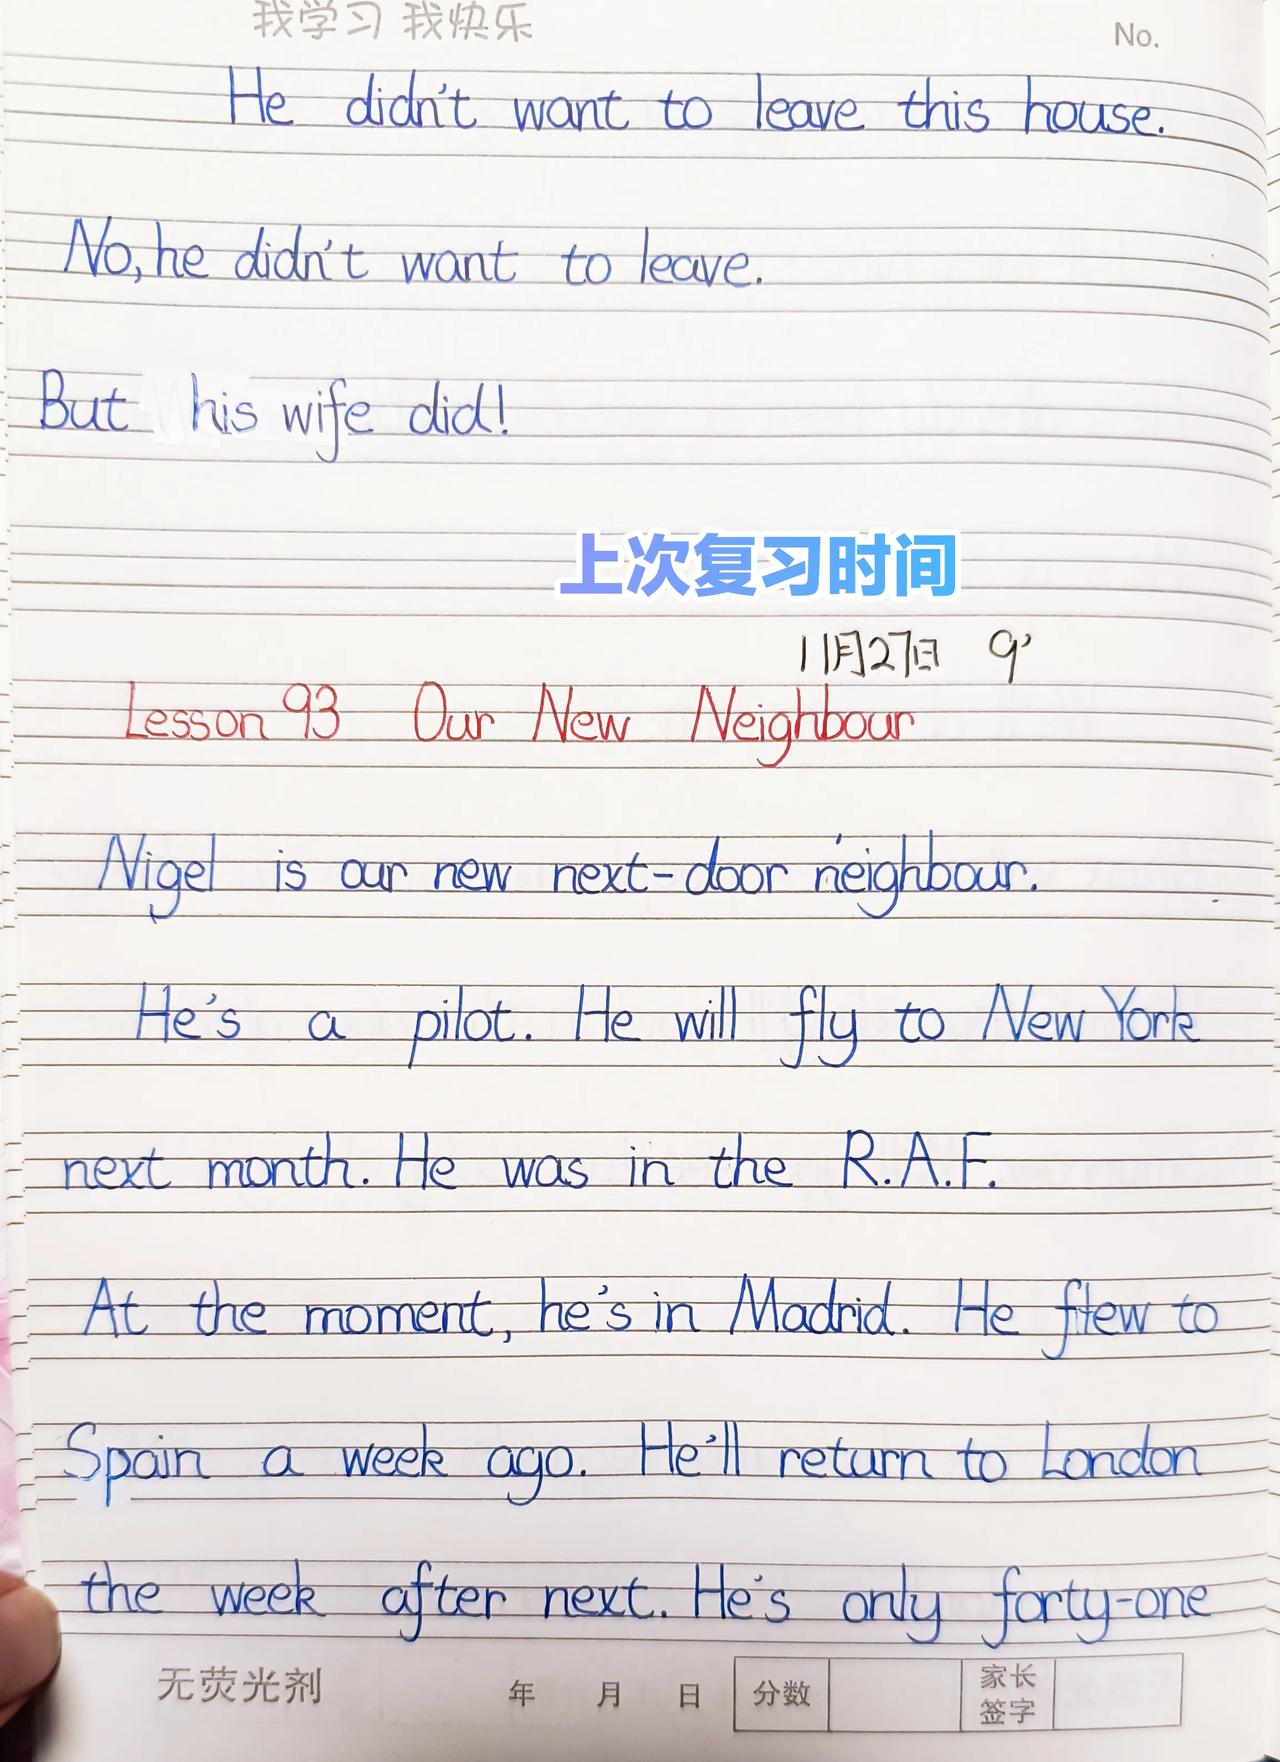 我学习 我快乐
No.
He didn't want to leave this house.
No, he didn't want to leave.
But his wife did!
上次复习时间
11月27日 9'
Lesson 93 Our New Neighbour
Nigel is our new next-door neighbour.
He's a pilot. He will fly to New York
next month. He was in the R.A.F.
At the moment, he's in Madrid. He flew to
Spain a week ago. He'll return to London
the week after next. He's only forty-one
无荧光剂 年 月 日 分数 家长签字